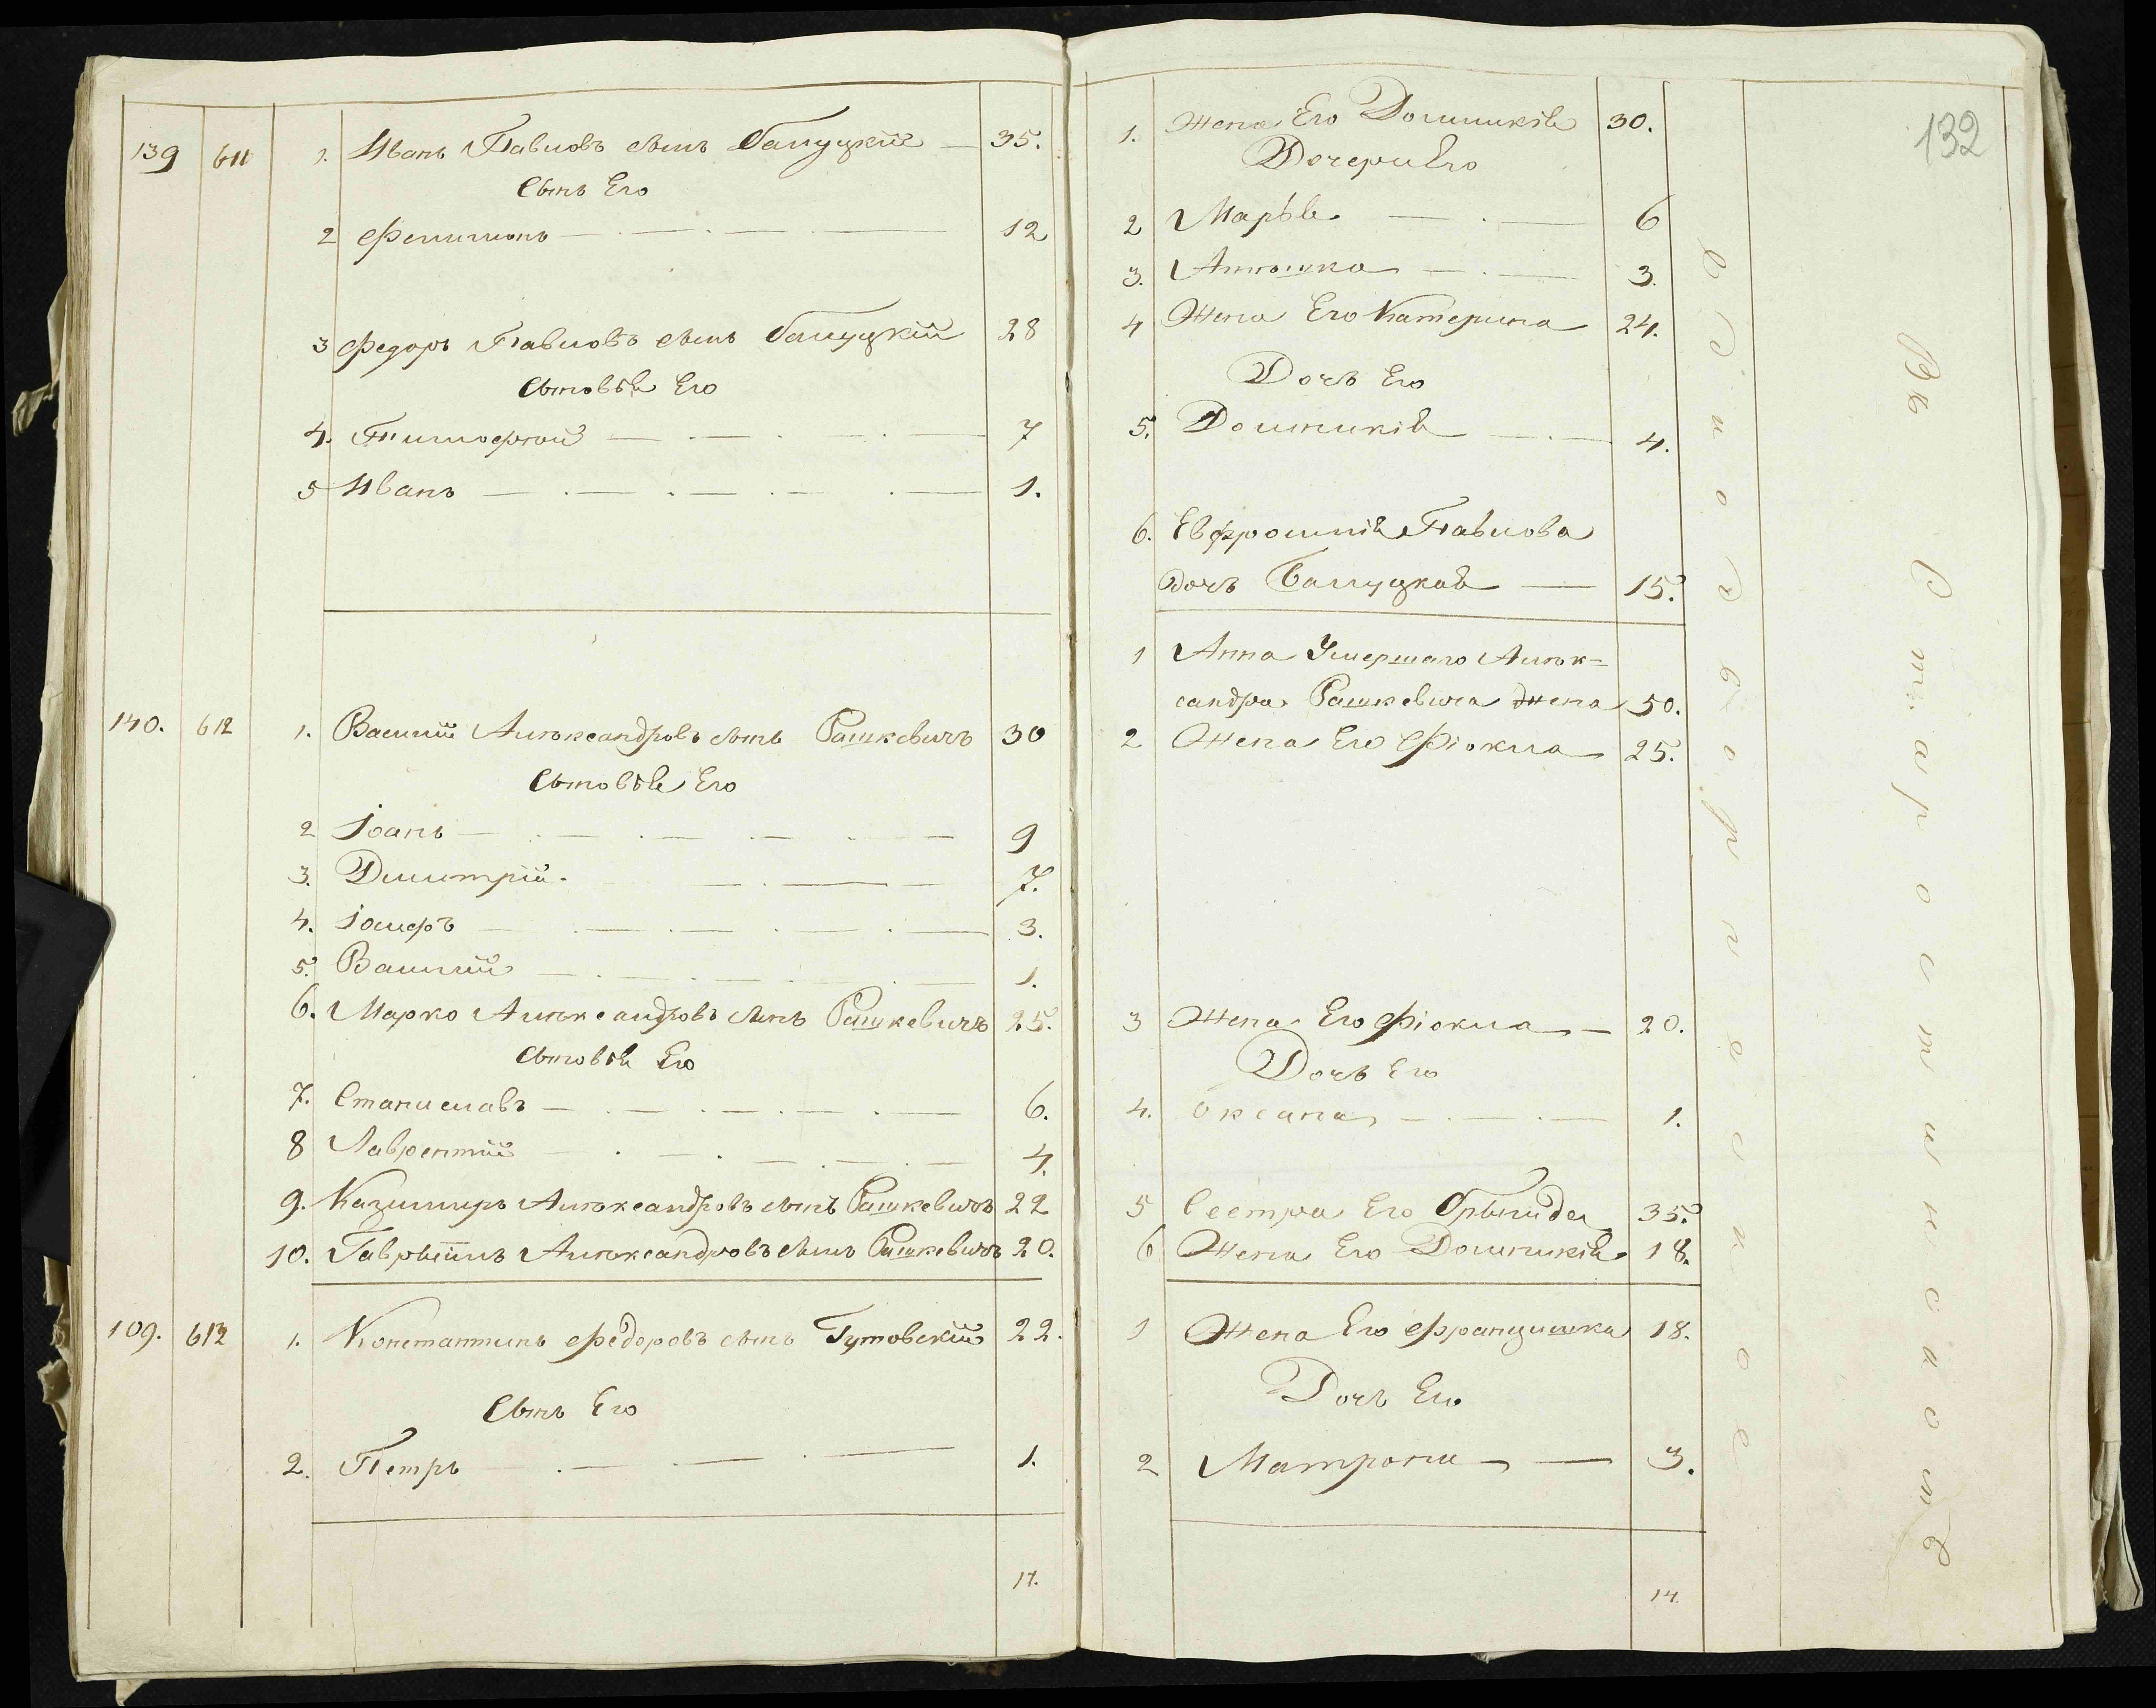 139 611 1. Иванъ Павловъ сынъ Балуцкій — 35.
Сынъ Его
2 Филимонъ 12
3 Федоръ Павловъ сынъ Балуцкій 28
Сыновья Его
4. Тимофтей 7
5 Иванъ 1.
140. 612 1. Василій Алѣксандровъ сынъ Рашкевичъ 30
Сыновья Его
2 Іоанъ 9
3. Дмитрій. 7.
4. Іосифъ 3.
5. Василій 1.
6. Марко Алѣксандровъ сынъ Рашкевичъ 25.
Сыновья Его
7. Станиславъ 6.
8 Лаврентій 4.
9. Казимиръ Алѣксандровъ сынъ Рашкевичъ 22
10. Алѣксандровъ сынъ Рашкевичъ 20.
109. 613 1. Константинъ Федоровъ сынъ Гутовскій 22.
Сынъ Его
2. Петръ 1.
17.
132
1. Жена Его Доминикія 30.
Дочери Его
2 Марья 6
3. Аннышка 3.
4 Жена Его Катерина 24.
Дочь Его
5. Доминикія 4.
6. Евфросинія Павлова
дочь Балуцкая — 15.
1 Анна Умершаго Алѣк=
сандра Рашкевича жена 50.
2 Жена Его Фіокла 25.
3 Жена Его Фіокла — 20.
Дочь Его
4. Оксана 1.
5 Сестра Его 35.
6 Жена Его Доминикія 18.
1 Жена Его Францишка 18.
Дочь Его
2 Матрона — 3.
14
Въ Старостинской